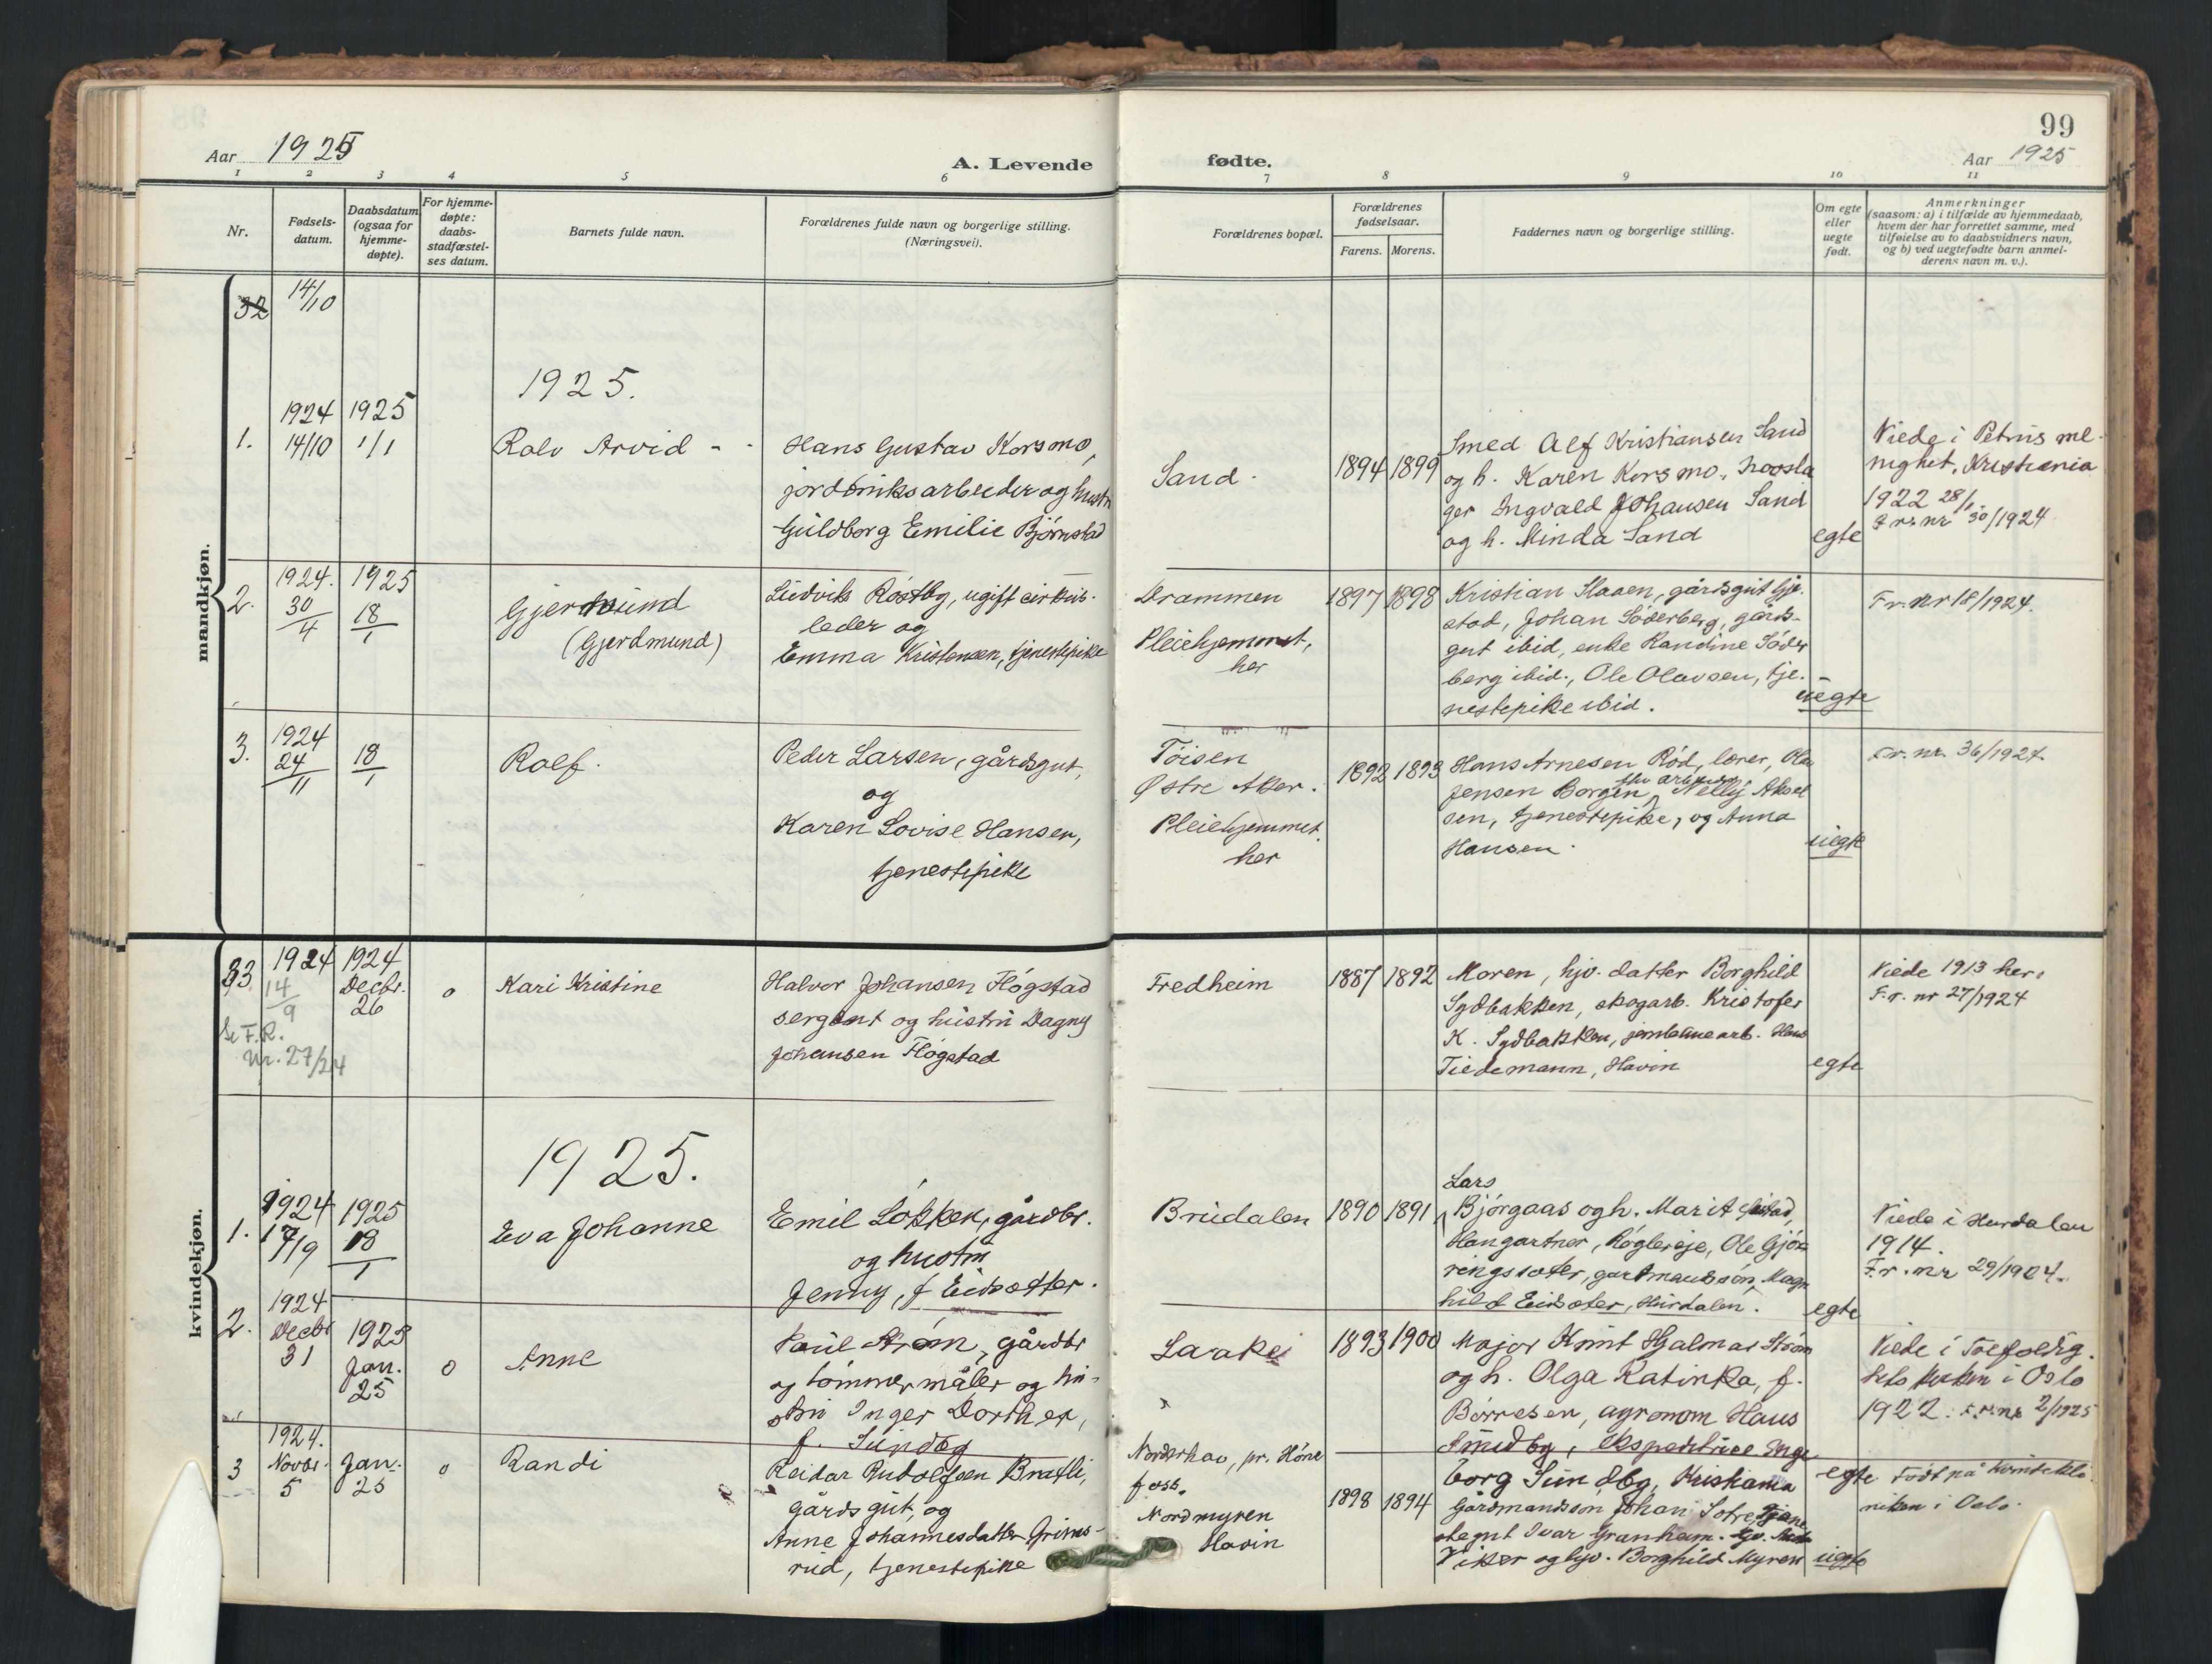 99
Aar 1925
A. Levende
fødte.
Aar 1925
1 2 3 4 5 6 7 8 9 10 11
Nr.
Fødsels-
datum.
Daabsdatum
(ogsaa for
hjemme-
døpte).
For hjemme-
døpte:
daabs-
stadfæstel-
ses datum.
Barnets fulde navn.
Forældrenes fulde navn og borgerlige stilling.
(Næringsvei).
Forældrenes bopæl.
Forældrenes
fødselsaar.
Farens. Morens.
Faddernes navn og borgerlige stilling.
Om egte
eller
uegte
født.
Anmerkninger
(saasom: a) i tilfælde av hjemmedaab,
hvem der har forrettet samme, med
tilføielse av to daabsvidners navn,
og b) ved uegtefødte barn anmel-
derens navn m. v.).
mandkjøn.
32
14/10
1925.
1.
1924
14/10
1925
1/1
Rolv Arvid
Hans Gustav Korsmo,
og hustru
Guldborg Emilie Bjørnstad
Sand.
1894 1899
Smed Alf Kristiansen Sand
og h. Karen Korsmo,
ger Ingvald Johansen Sand
og h. Minda Sand
egte
Viede i Petrus me-
nighet, Kristiania
1922 28/1
F.r. nr 30/1924
2.
1924.
30/4
1925
18/1
Gjermund
(Gjerdmund)
Ludvik Røstby, ugift cirkus-
leder og
Emma Kristensen, tjenestepike
Drammen
Pleiehjemmet,
her
1897 1898
Kristian Haaen, gårdsgut Gje-
stad, Johan Söderberg, gårds-
gut ibid, enke Randine Söder
berg ibid., Ole Olavsen, tje-
nestepike ibid.
uegte
Fr. nr 18/1924.
3.
1924
24/11
18/1
Rolf.
Peder Larsen, gårdsgut,
og
Karen Lovise Hansen,
tjenestepike
Töisen
Østre Aker.
Pleiehjemmet
her
1892 1893
Hans Arnesen Rød, lærer, Ole
Jensen Borgen, Nelly Aksel
sen, tjenestepike, og Anna
Hansen.
uegte
Fr. nr. 36/1924.
kvindekjøn.
33
1924
14/9
Se F.R.
Nr. 27/24
1924
Decbr.
26
0
Kari Kristine
Halvor Johansen Høgstad
sergent og hustru Dagny
Johansen Høgstad
Fredheim
1887 1892
Moren, hjv. datter Borghild
Sydbakken, skogarb. Kristofer
K. Sydbakken, jernbanearb. Hans
Tiedemann, Havin
egte
Viede 1913 her.
F.r. nr 27/1924
1925.
1.
1924
17/9
1925
18/1
Eva Johanne
Emil Løkken, gårdbr.
og hustru
Jenny, f. Eidsætter.
Brudalen
1890 1891
Lars
Bjørgaas og h. Marit
Ole Gjö-
ringssæter, gardmandssøn, Magn
hild Eidsæter, Hurdalen.
egte
Viede i Hurdalen
1914.
F.r. nr 29/1924.
2.
1924
Decbr
31
1925
Jan.
25
0
Anne
Paul Strøm, gårdbr
og tømmermåler og hu-
stru Inger Dorthea,
f. Sundby
Laake
1893 1900
Major Knut Hjalmar Strøm
og h. Olga Katinka, f.
Børresen, agronom Hans
Smedby, ekspeditrise Inge
borg Sundby, Kristiania
egte
Viede i Trefoldig-
hets kirken i Oslo
1922. F.r. nr 2/1925
3
1924.
Novbr.
5
Jan.
25
0
Randi
Reidar Rudolfsen Bratli,
gårdsgut, og
Anne Johannesdatter Grims-
rud, tjenestepike
Norderhov, pr. Høne
foss.
Nordmyren
Havin
1898 1894
Gårdmandssøn Johan Sotre, tjene
stegut Ivar Granheim.
Viker og hjv. Borghild Myren
uegte
Født på Kvindekli
niken i Oslo.